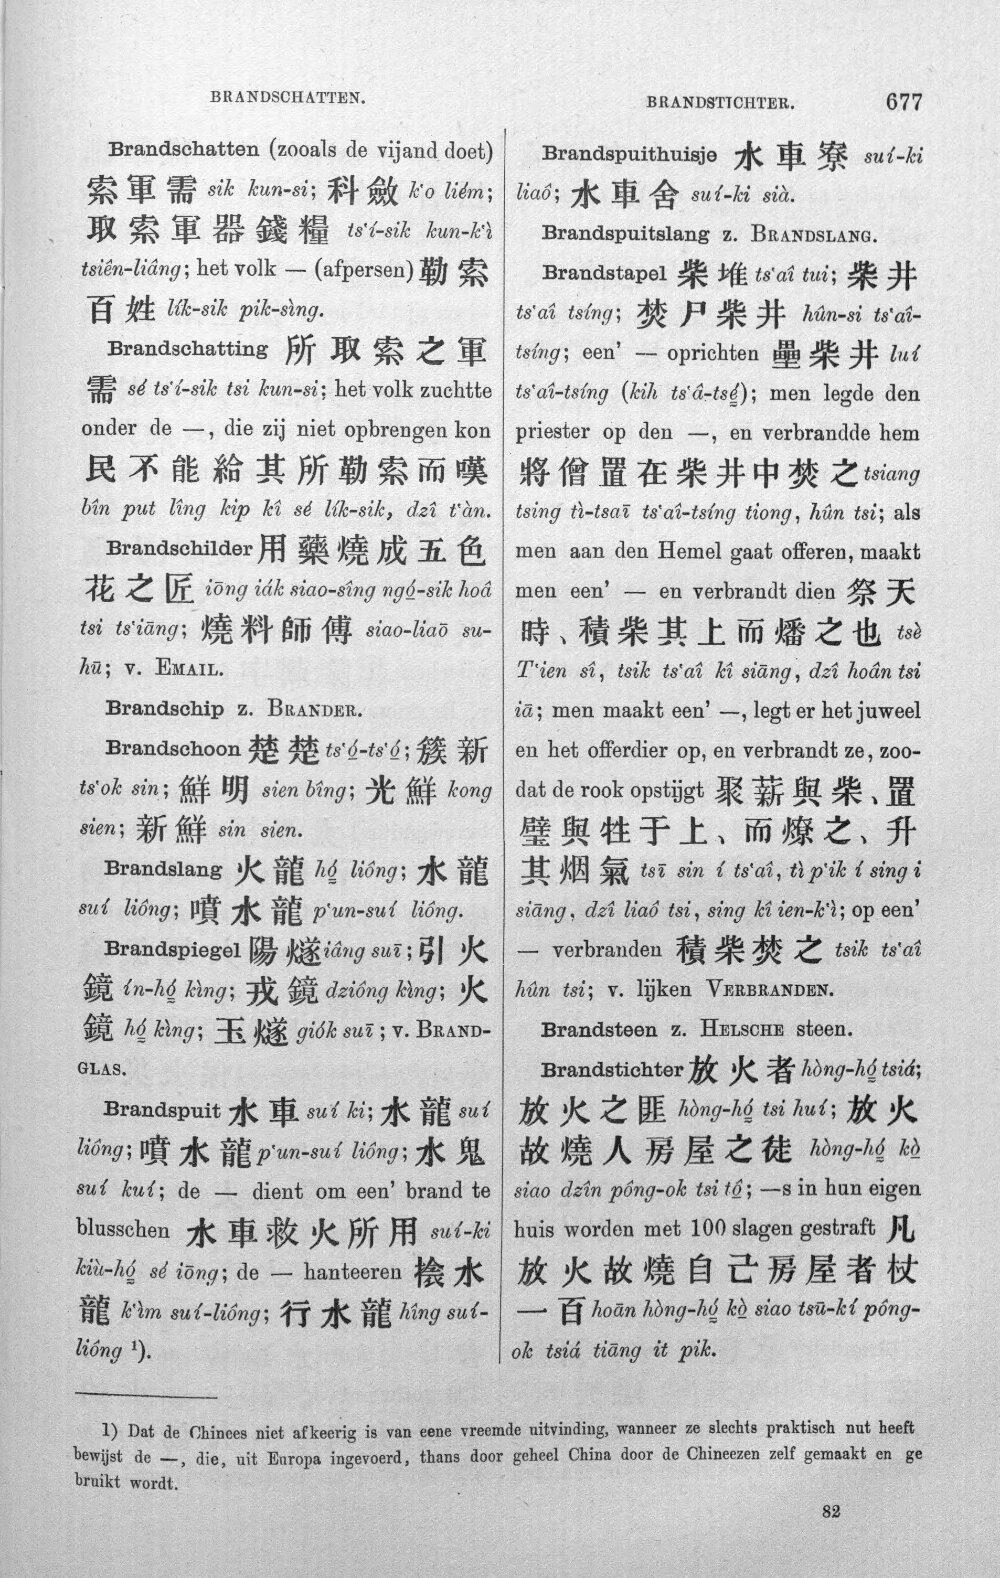 BRANDSCHATTEN.
Brandschatten (zooals de vijand doet)
索軍需 sik kun-si; 科斂 k‘o liém;
取索軍器錢糧 ts‘í-sik kun-k‘ì
tsiên-liâng; het volk — (afpersen) 勒索
百姓 lík-sik pik-sìng.
Brandschatting 所取索之軍
需 sé ts‘í-sik tsi kun-si; het volk zuchtte
onder de —, die zij niet opbrengen kon
民不能給其所勒索而嘆
bîn put lîng kip kî sé lík-sik, dzî t‘àn.
Brandschilder 用藥燒成五色
花之匠 iōng iák siao-sîng ngó̤-sik hoâ
tsi ts‘iāng; 燒料師傅 siao-liaō su-
hū; v. EMAIL.
Brandschip z. BRANDER.
Brandschoon 楚楚 ts‘ó̤-ts‘ó̤;簇新
ts‘ok sin; 鮮明 sien bîng; 光鮮 kong
sien; 新鮮 sin sien.
Brandslang 火龍 hó̤ liông; 水龍
suí liông; 噴水龍 p‘un-suí liông.
Brandspiegel 陽燧 iâng suī; 引火
鏡 ín-hó̤ kìng; 戎鏡 dziông kìng; 火
鏡 hó̤ kìng; 玉燧 giók suī; v. BRAND-
GLAS.
Brandspuit 水車 suí ki; 水龍 suí
liông; 噴水龍 p‘un-suí liông; 水鬼
suí kuí; de — dient om een’ brand te
blusschen 水車救火所用 suí-ki
kiù-hó̤ sé iōng; de — hanteeren 捦水
龍 k‘îm suí-liông; 行水龍 hîng suí-
liông ¹).
BRANDSTICHTER. 677
Brandspuithuisje 水車寮 suí-ki
liaô; 水車舍 suí-ki sià.
Brandspuitslang z. BRANDSLANG.
Brandstapel 柴堆 ts‘aî tui; 柴井
ts‘aî tsíng; 焚尸柴井 hûn-si ts‘aî-
tsíng; een’ — oprichten 壘柴井 luí
ts‘aî-tsíng (kih ts‘â-tsé̤); men legde den
priester op den —, en verbrandde hem
將僧置在柴井中焚之 tsiang
tsing tì-tsaī ts‘aî-tsíng tiong, hûn tsi; als
men aan den Hemel gaat offeren, maakt
men een’ — en verbrandt dien 祭天
時、積柴其上而燔之也 tsè
T‘ien sî, tsik ts‘aî kî siāng, dzî hoân tsi
iā; men maakt een’ —, legt er het juweel
en het offerdier op, en verbrandt ze, zoo-
dat de rook opstijgt 聚薪與柴、置
璧與牲于上、而燎之、升
其烟氣 tsī sin í ts‘aî, tì p‘ik í sing i
siāng, dzî liaô tsi, sing kî ien-k‘ì; op een’
— verbranden 積柴焚之 tsik ts‘aî
hûn tsi; v. lijken VERBRANDEN.
Brandsteen z. HELSCHE steen.
Brandstichter 放火者 hòng-hó̤ tsiá;
放火之匪 hòng-hó̤ tsi huí; 放火
故燒人房屋之徒 hòng-hó̤ kò̤
siao dzîn pông-ok tsi tô̤; —s in hun eigen
huis worden met 100 slagen gestraft 凡
放火故燒自己房屋者杖
一百 hoān hòng-hó̤ kò̤ siao tsū-kí pông-
ok tsiá tiāng it pik.
1) Dat de Chinees niet afkeerig is van eene vreemde uitvinding, wanneer ze slechts praktisch nut heeft
bewijst de —, die, uit Europa ingevoerd, thans door geheel China door de Chineezen zelf gemaakt en ge
bruikt wordt.
82